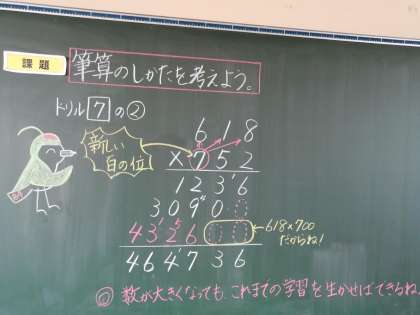 課題
筆算のしかたを考えよう。
ドリル 7 の②
新しい
百の位
618
×752
1236
3090
4326
618×700
だからね！
464736
◎ 数が大きくなっても、これまでの学習を生かせばできるね